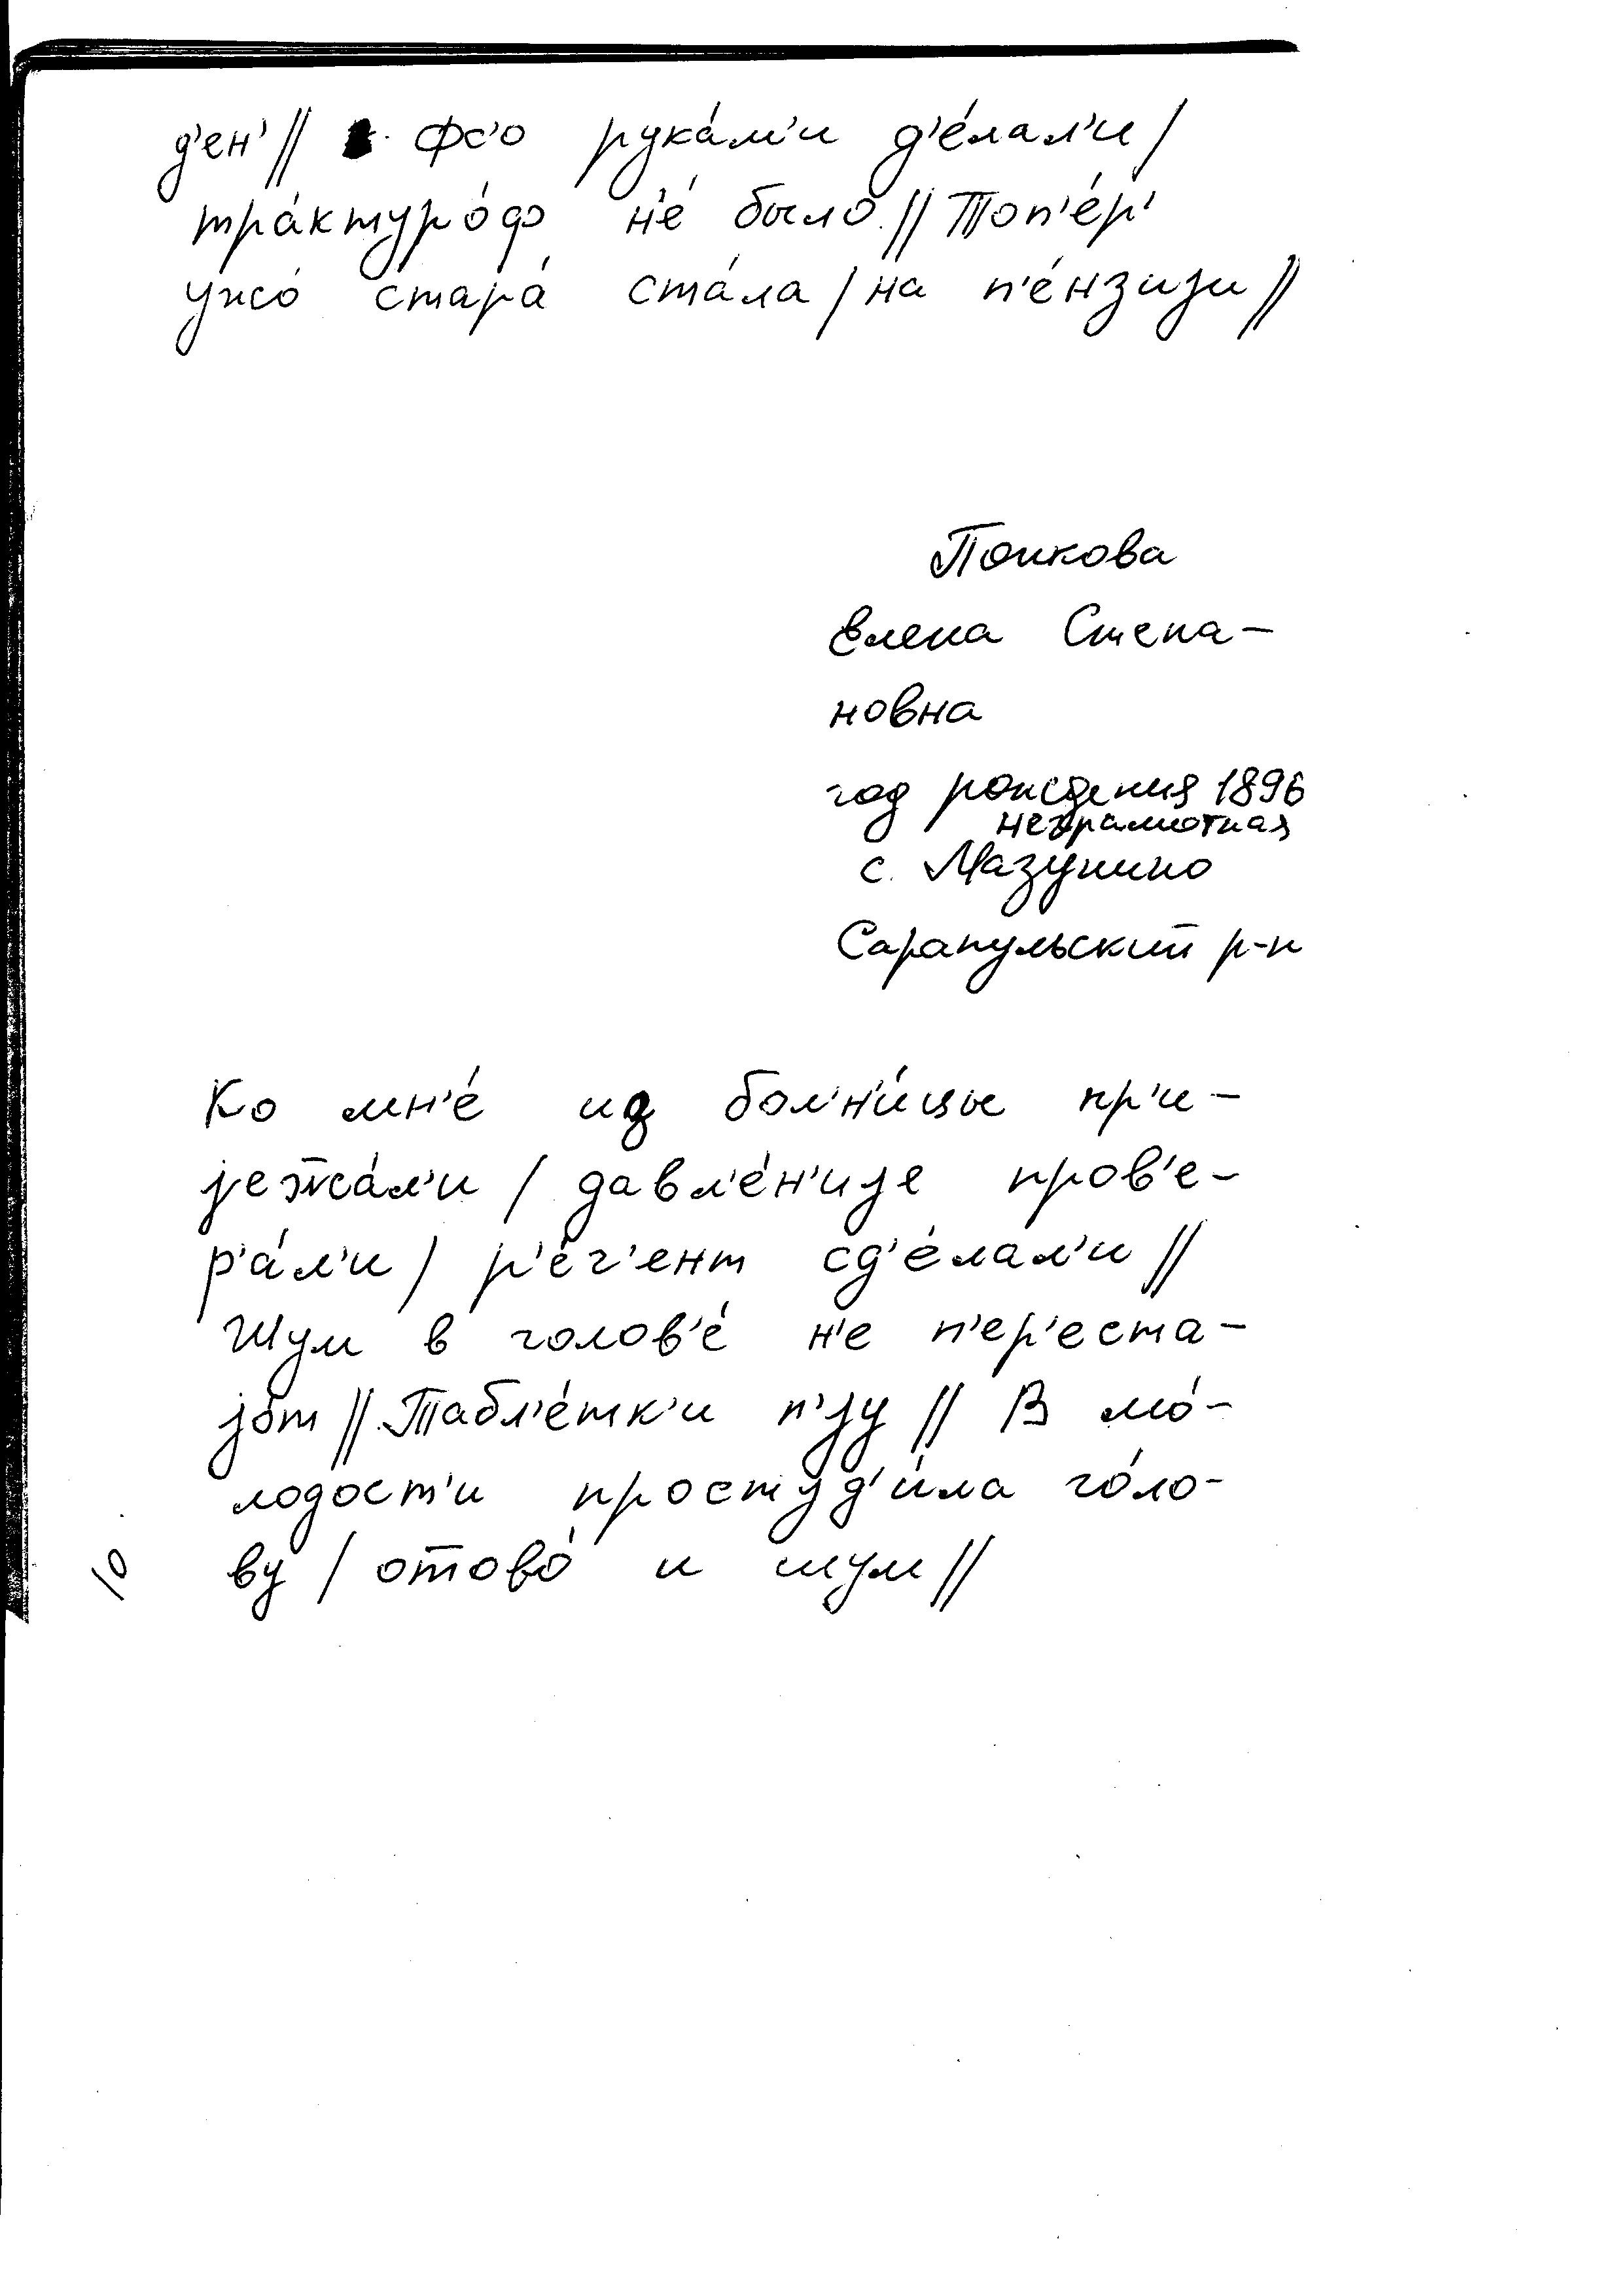 д'ен' // Фс'о рука́м'и д'е́лал'и /
тра́кту́ро́ф н'е́ было // Топ'е́р'
ужо́ стара́ ста́ла / на п'е́нзиjи //
Попкова
Елена Степа-
новна
год рождения 1896
неграмотная
с. Мазунино
Сарапульский р-н
Ко мн'е́ из бол'н'и́цы пр'и-
jежжа́л'и / давл'е́н'иjе пров'е-
р'а́л'и / р'е́г'ент сд'е́лал'и //
Шум в голов'е́ н'е п'ер'еста-
jо́т // Табл'е́тк'и п'jу // В мо́-
лодост'и простуд'и́ла го́ло-
ву / отово́ и шум //
10